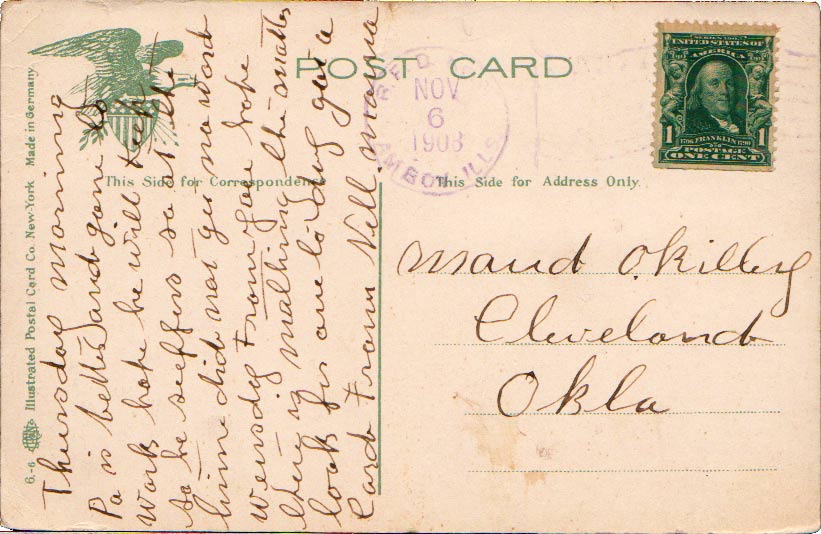 POST CARD
R.F.D.
NOV
6
1908
AMBOY, ILLS
SERIES 1902
UNITED STATES OF
AMERICA
1706 FRANKLIN 1790
1 POSTAGE 1
ONE CENT
This Side for Correspondence
This Side for Address Only.
6-6 Illustrated Postal Card Co. New-York Made in Germany
Thursday morning
Pa is better and gone to
work hope he will keep
so he suffers so at the
time did not get no word
from you hope
there is nothing the matter
look for one to day got a
card from Nell mama
Maud Okilley
Cleveland
Okla